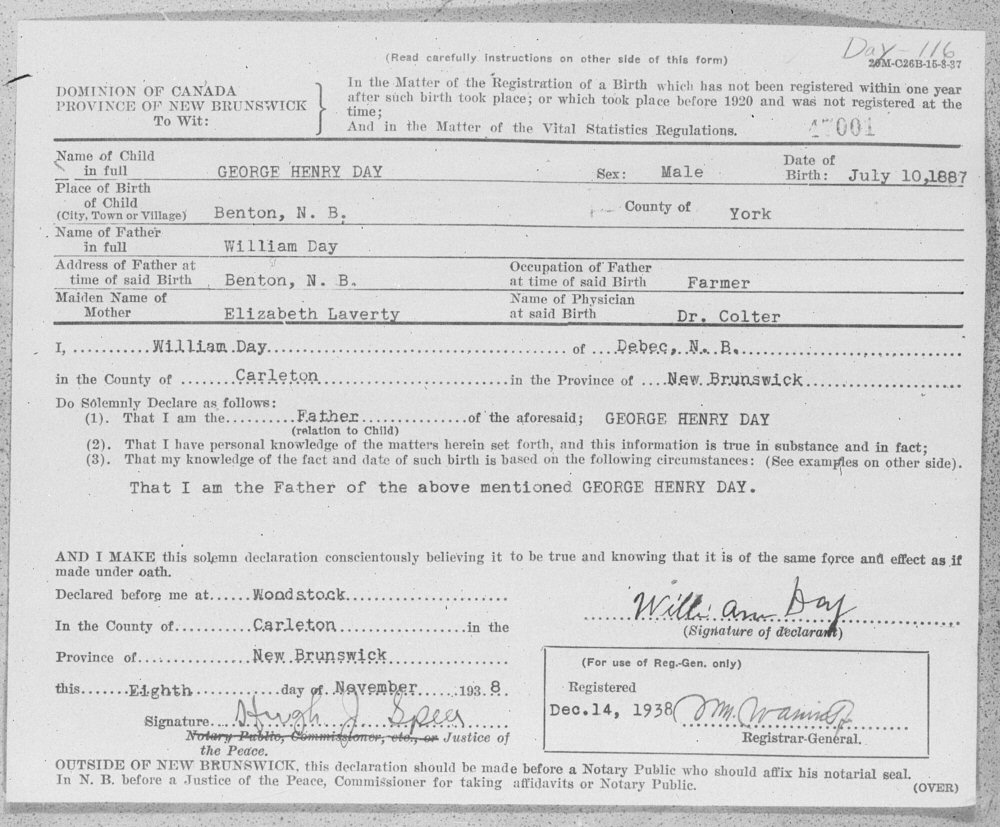 Day - 116
(Read carefully instructions on other side of this form)
20M-C26B-15-8-37
DOMINION OF CANADA
PROVINCE OF NEW BRUNSWICK
To Wit:
In the Matter of the Registration of a Birth which has not been registered within one year
after such birth took place; or which took place before 1920 and was not registered at the
time;
And in the Matter of the Vital Statistics Regulations.
47001
Name of Child
in full GEORGE HENRY DAY Sex: Male Date of
Birth: July 10,1887
Place of Birth
of Child
(City, Town or Village) Benton, N. B. County of York
Name of Father
in full William Day
Address of Father at
time of said Birth Benton, N. B. Occupation of Father
at time of said Birth Farmer
Maiden Name of
Mother Elizabeth Laverty Name of Physician
at said Birth Dr. Colter
I, ...........William Day.............................................. of ....Debec, N. B.................................
in the County of ........Carleton..............................in the Province of ....New Brunswick.......................
Do Solemnly Declare as follows:
(1). That I am the..........Father................of the aforesaid; GEORGE HENRY DAY
(relation to Child)
(2). That I have personal knowledge of the matters herein set forth, and this information is true in substance and in fact;
(3). That my knowledge of the fact and date of such birth is based on the following circumstances: (See examples on other side).
That I am the Father of the above mentioned GEORGE HENRY DAY.
AND I MAKE this solemn declaration conscientously believing it to be true and knowing that it is of the same force and effect as if
made under oath.
Declared before me at......Woodstock........................
In the County of...........Carleton...................in the
Province of................New Brunswick..................
this.......Eighth.............day of November......193 8.
William Day
(Signature of declarant)
Signature Hugh J Speer
Notary Public, Commissioner, etc., or Justice of
the Peace.
(For use of Reg.-Gen. only)
Registered
Dec.14, 1938
Registrar-General.
OUTSIDE OF NEW BRUNSWICK, this declaration should be made before a Notary Public who should affix his notarial seal.
In N. B. before a Justice of the Peace, Commissioner for taking affidavits or Notary Public.
(OVER)